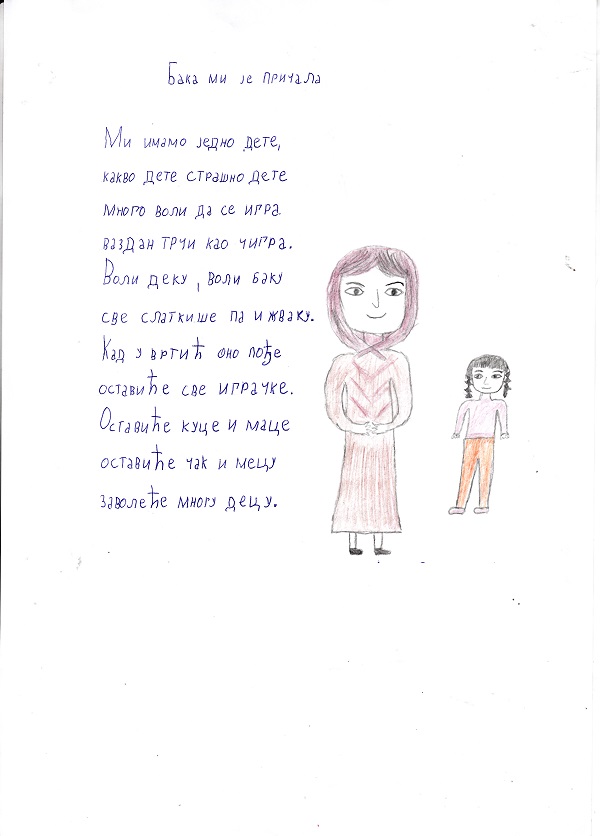 Бака ми је причала
Ми имамо једно дете,
какво дете страшно дете
много воли да се игра
ваздан трчи као чигра.
Воли деку, воли баку
све слаткише па и жваку.
Кад у вртић оно пође
оставиће све играчке.
Оставиће куце и маце
оставиће чак и мецу
заволеће многу децу.